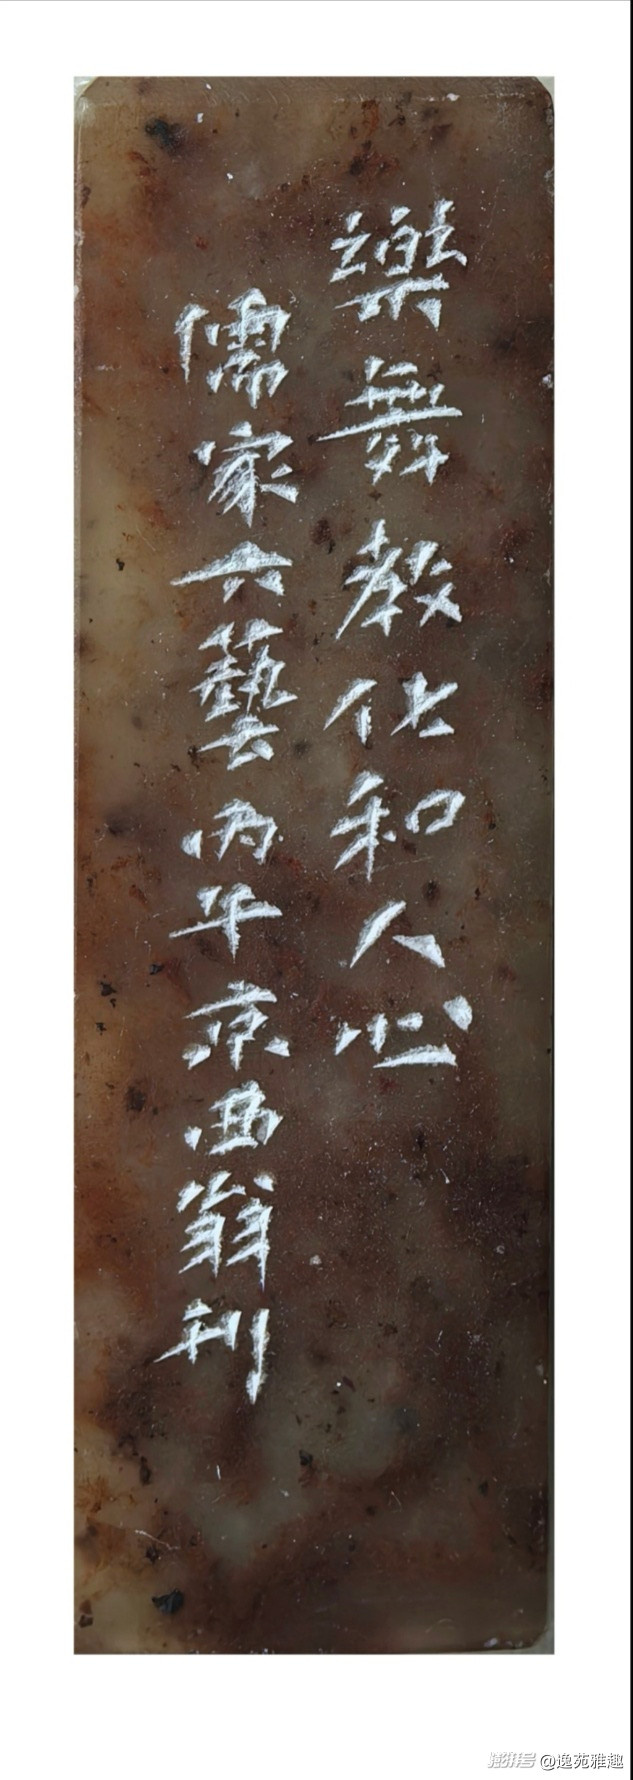 樂舞教化和人心
儒家六藝丙午京西翁刊
澎湃号 @逸苑雅趣